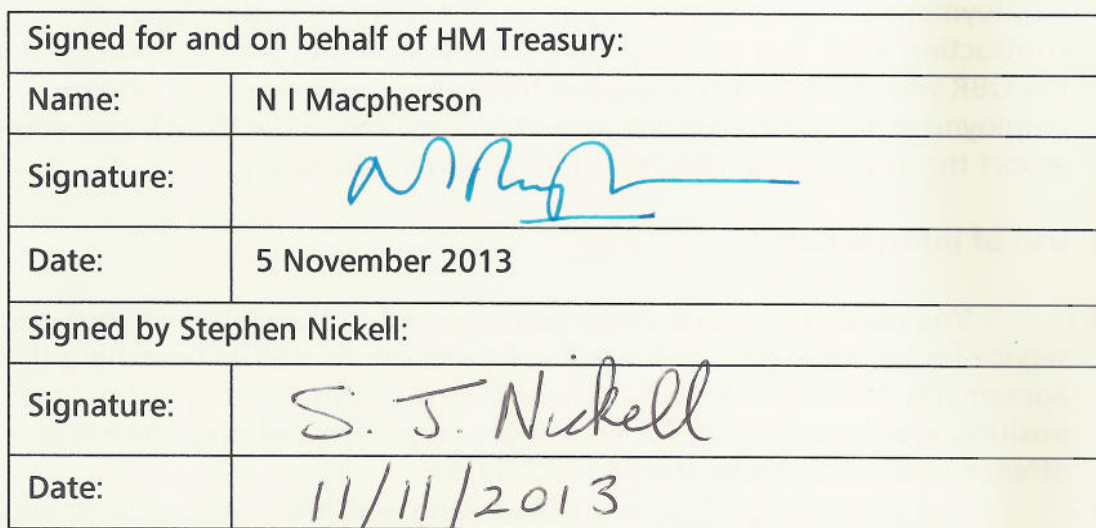 Signed for and on behalf of HM Treasury:
Name: N I Macpherson
Signature:
Date: 5 November 2013
Signed by Stephen Nickell:
Signature: S. J. Nickell
Date: 11/11/2013